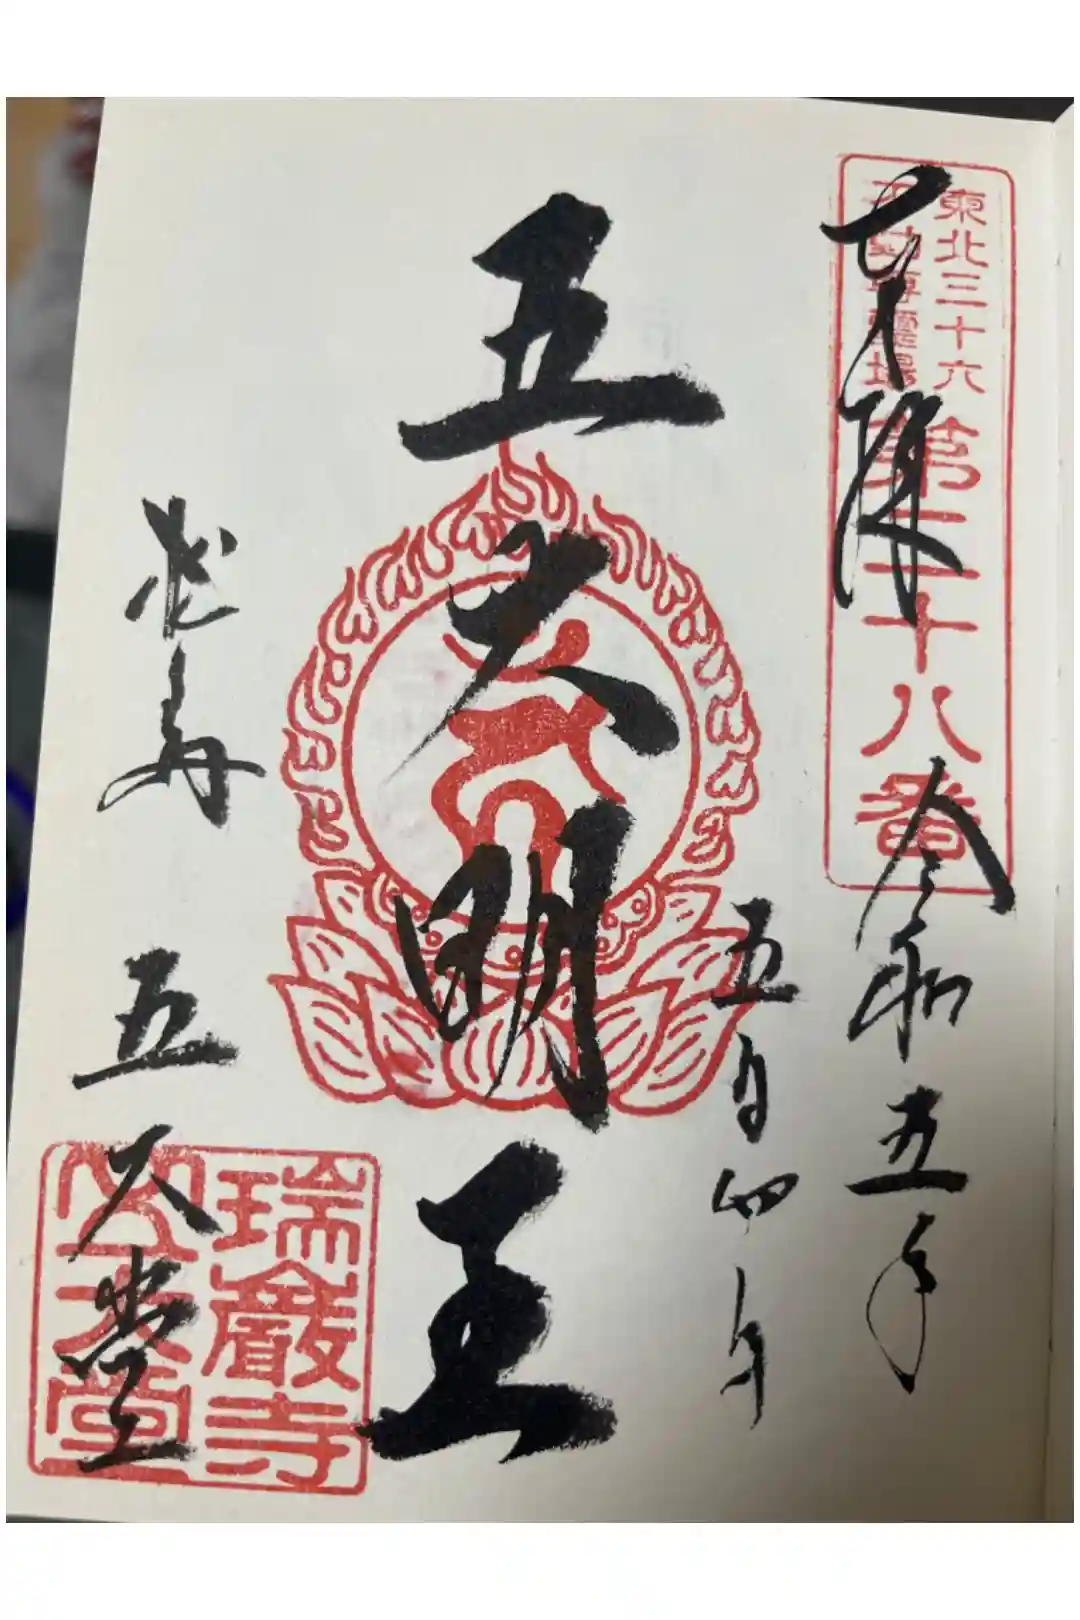 奉拝
東北三十六
不動尊霊場
第二十八番
令和五年
五月四日
五大明王
松島
五大堂
瑞巌寺
五大堂